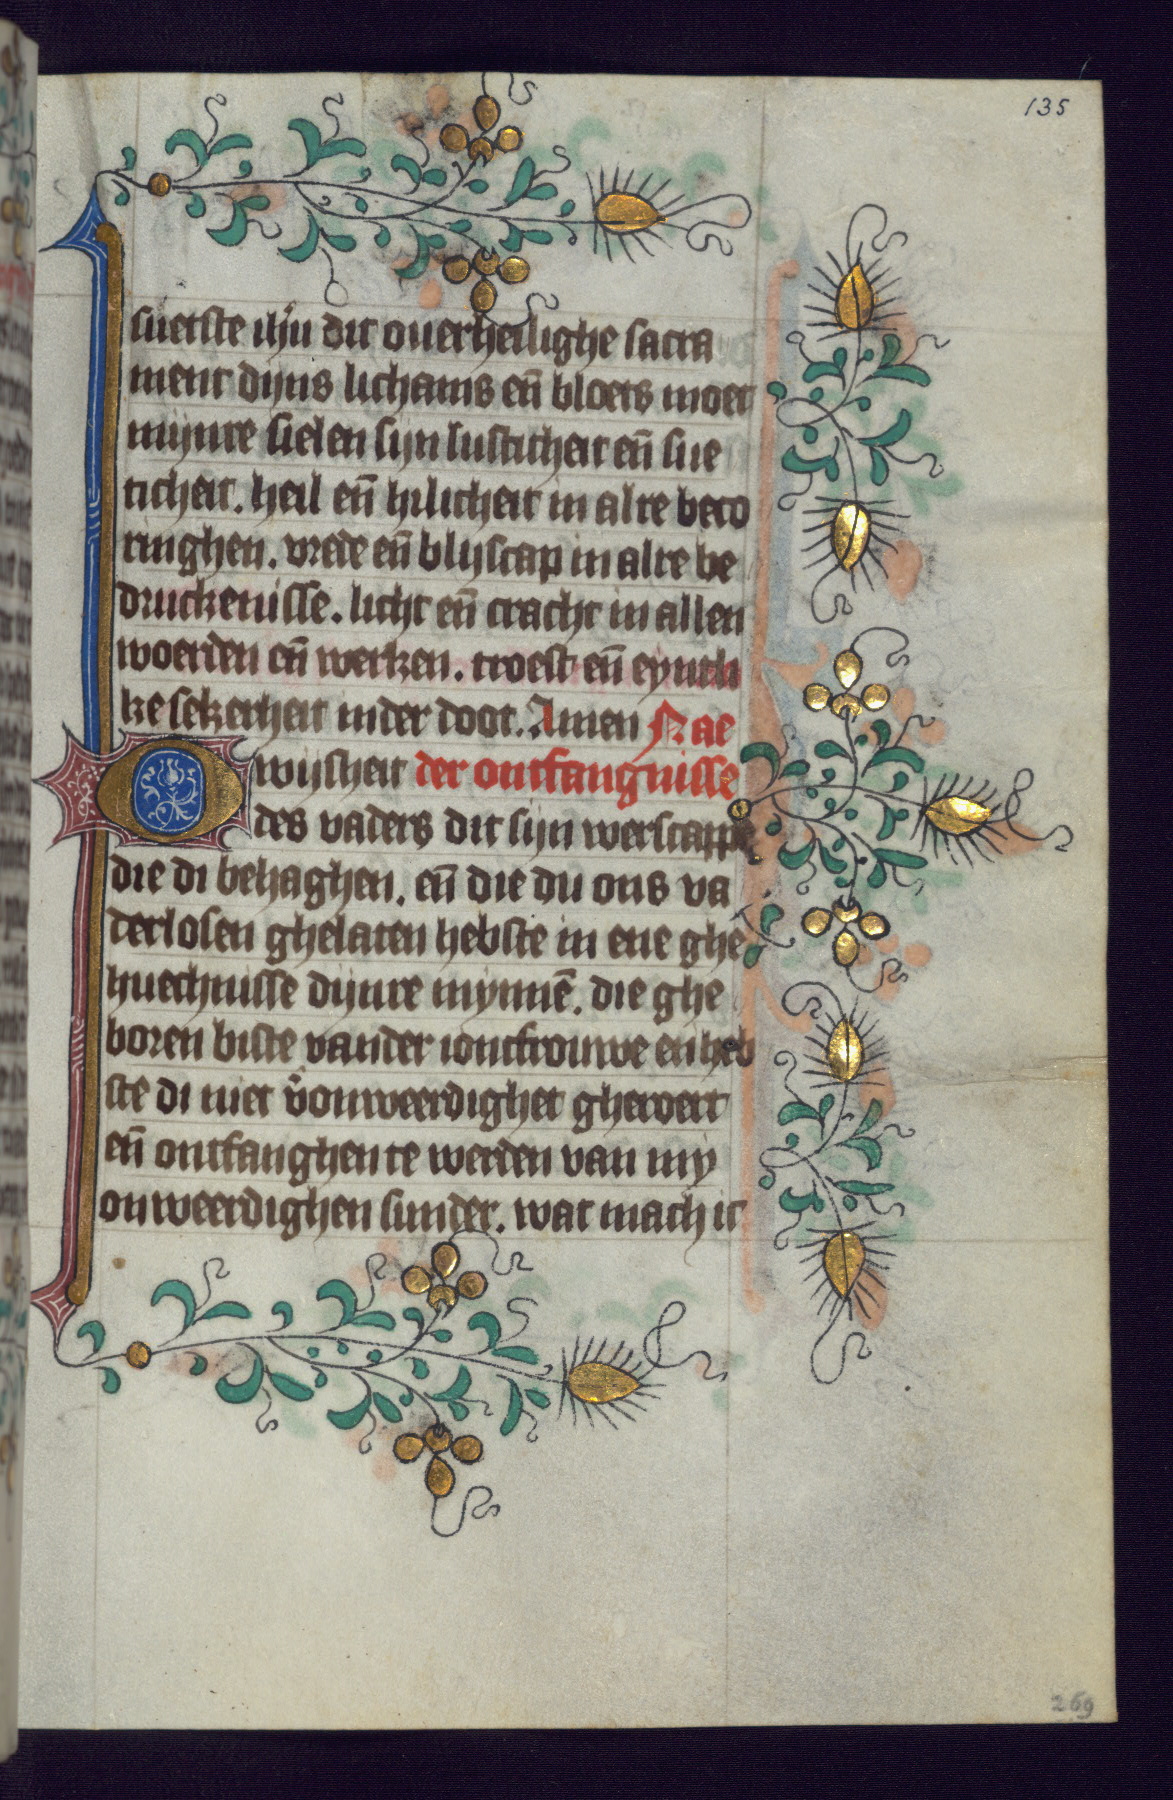 135
suetste ih̄u dit ouerheilighe sacra
ment dijns lichams en̄ bloets moet
mijnre sielen sijn lusticheit en̄ sue
ticheit. heil en̄ hilicheit in alre beco
ringhen. vrede en̄ blijscap in alre be
druckenisse. licht en̄ cracht in allen
woerden en̄ werken. troest en̄ eyntli
ke sekerheit inder doot. Amen Nae
O wijsheit der ontfangnisse
des vaders dit sijn werscappe
die di behaghen. en̄ die du ons va
derlosen ghelaten hebste in ene ghe
huechnisse dijnre mynnē. die ghe
boren biste vander ioncfrouwe en heb
ste di niet v̄onweerdighet ghevoert
en̄ ontfanghen te werden van my
onweerdighen sunder. wat mach ic
269